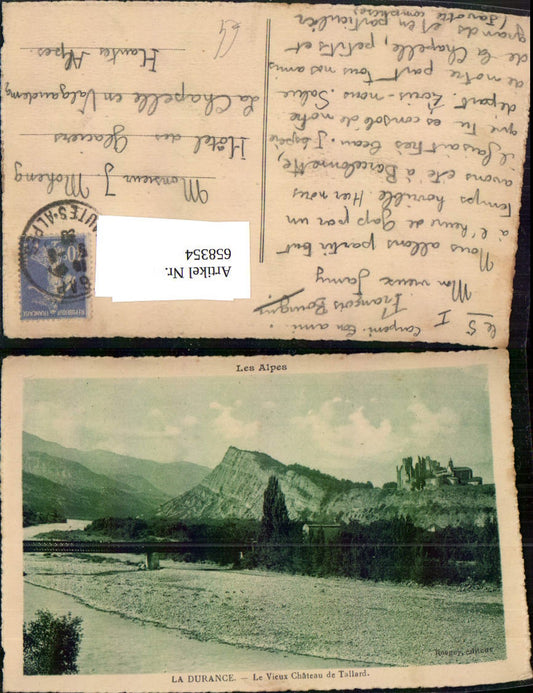 le 5 I
Mon vieux Jamy
Nous allons partir tout
à l'heure de Gap par un
temps horrible. Hier nous
avons été à Barcelonnette,
il faisait très beau. J'espère
que tu es consolé de notre
départ. Écris-nous. Salue
de notre part tous nos amis
de La Chapelle, petits et
grands et en particulier
Ton ami.
François
Monsieur J Moheng
Hôtel des Glaciers
La Chapelle en Valgaudemy
Hautes Alpes
GAP
HAUTES-ALPES
REPUBLIQUE FRANÇAISE
Artikel Nr.
658354
Les Alpes
LA DURANCE. — Le Vieux Château de Tallard.